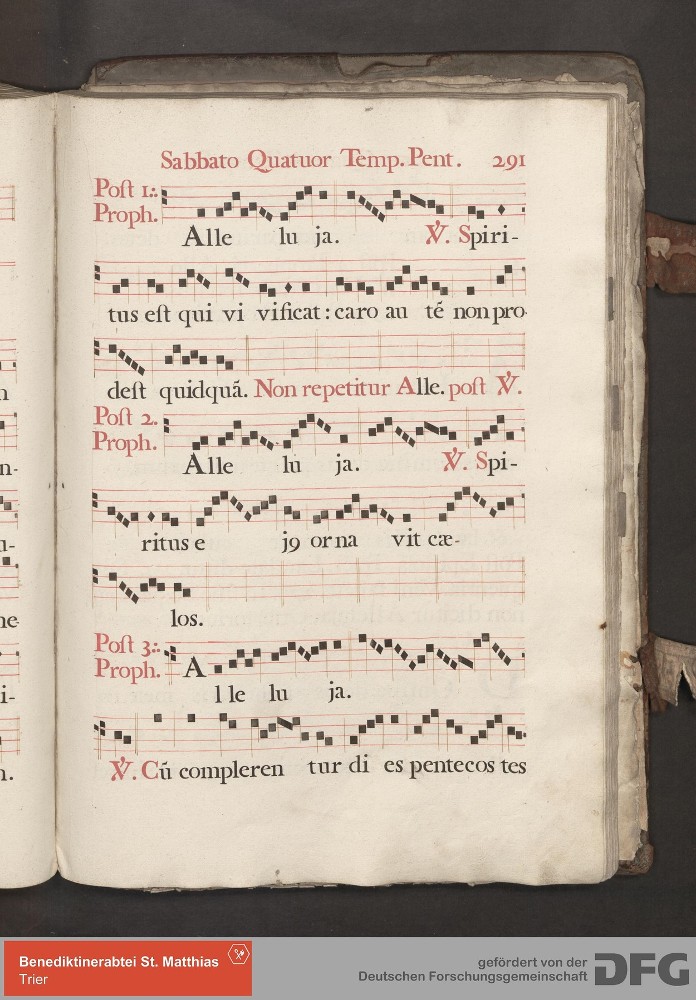 Sabbato Quatuor Temp. Pent. 291
Poſt 1.
Proph.
Alle lu ja. ℣. Spiri-
tus eſt qui vi vificat: caro au té non pro-
deſt quidquã. Non repetitur Alle. poſt ℣.
Poſt 2.
Proph.
Alle lu ja. ℣. Spi-
ritus e j9 orna vit cæ-
los.
Poſt 3.
Proph.
A
lle lu ja.
℣. Cũ compleren tur di es pentecos tes
Benediktinerabtei St. Matthias
Trier
gefördert von der
Deutschen Forschungsgemeinschaft
DFG